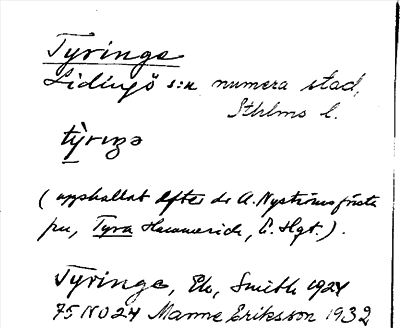 Tyringe
Lidingö s:n numera stad,
Sthlms l.
ty̌rıŋə
(uppkallat efter dr A. Nyströms första
fru, Tyra Hammerich, L. Hgt.).
Tyringe, Eb, Smith 1924
75 NO 24 Manne Eriksson 1932